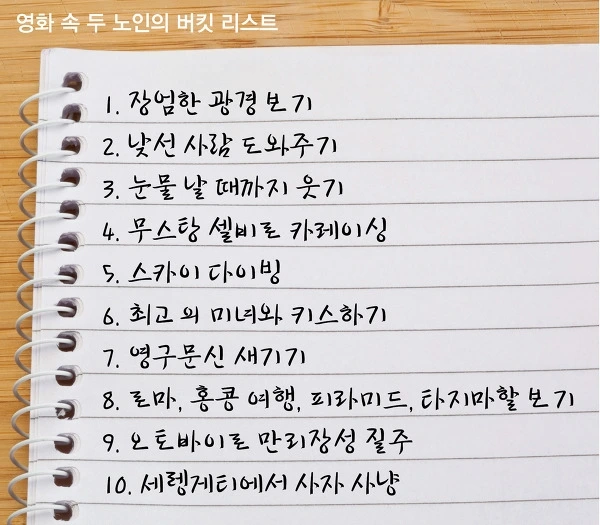 영화 속 두 노인의 버킷 리스트
1. 장엄한 광경 보기
2. 낯선 사람 도와주기
3. 눈물 날 때까지 웃기
4. 무스탕 셸비로 카레이싱
5. 스카이 다이빙
6. 최고의 미녀와 키스하기
7. 영구문신 새기기
8. 로마, 홍콩 여행, 피라미드, 타지마할 보기
9. 오토바이로 만리장성 질주
10. 세렝게티에서 사자 사냥